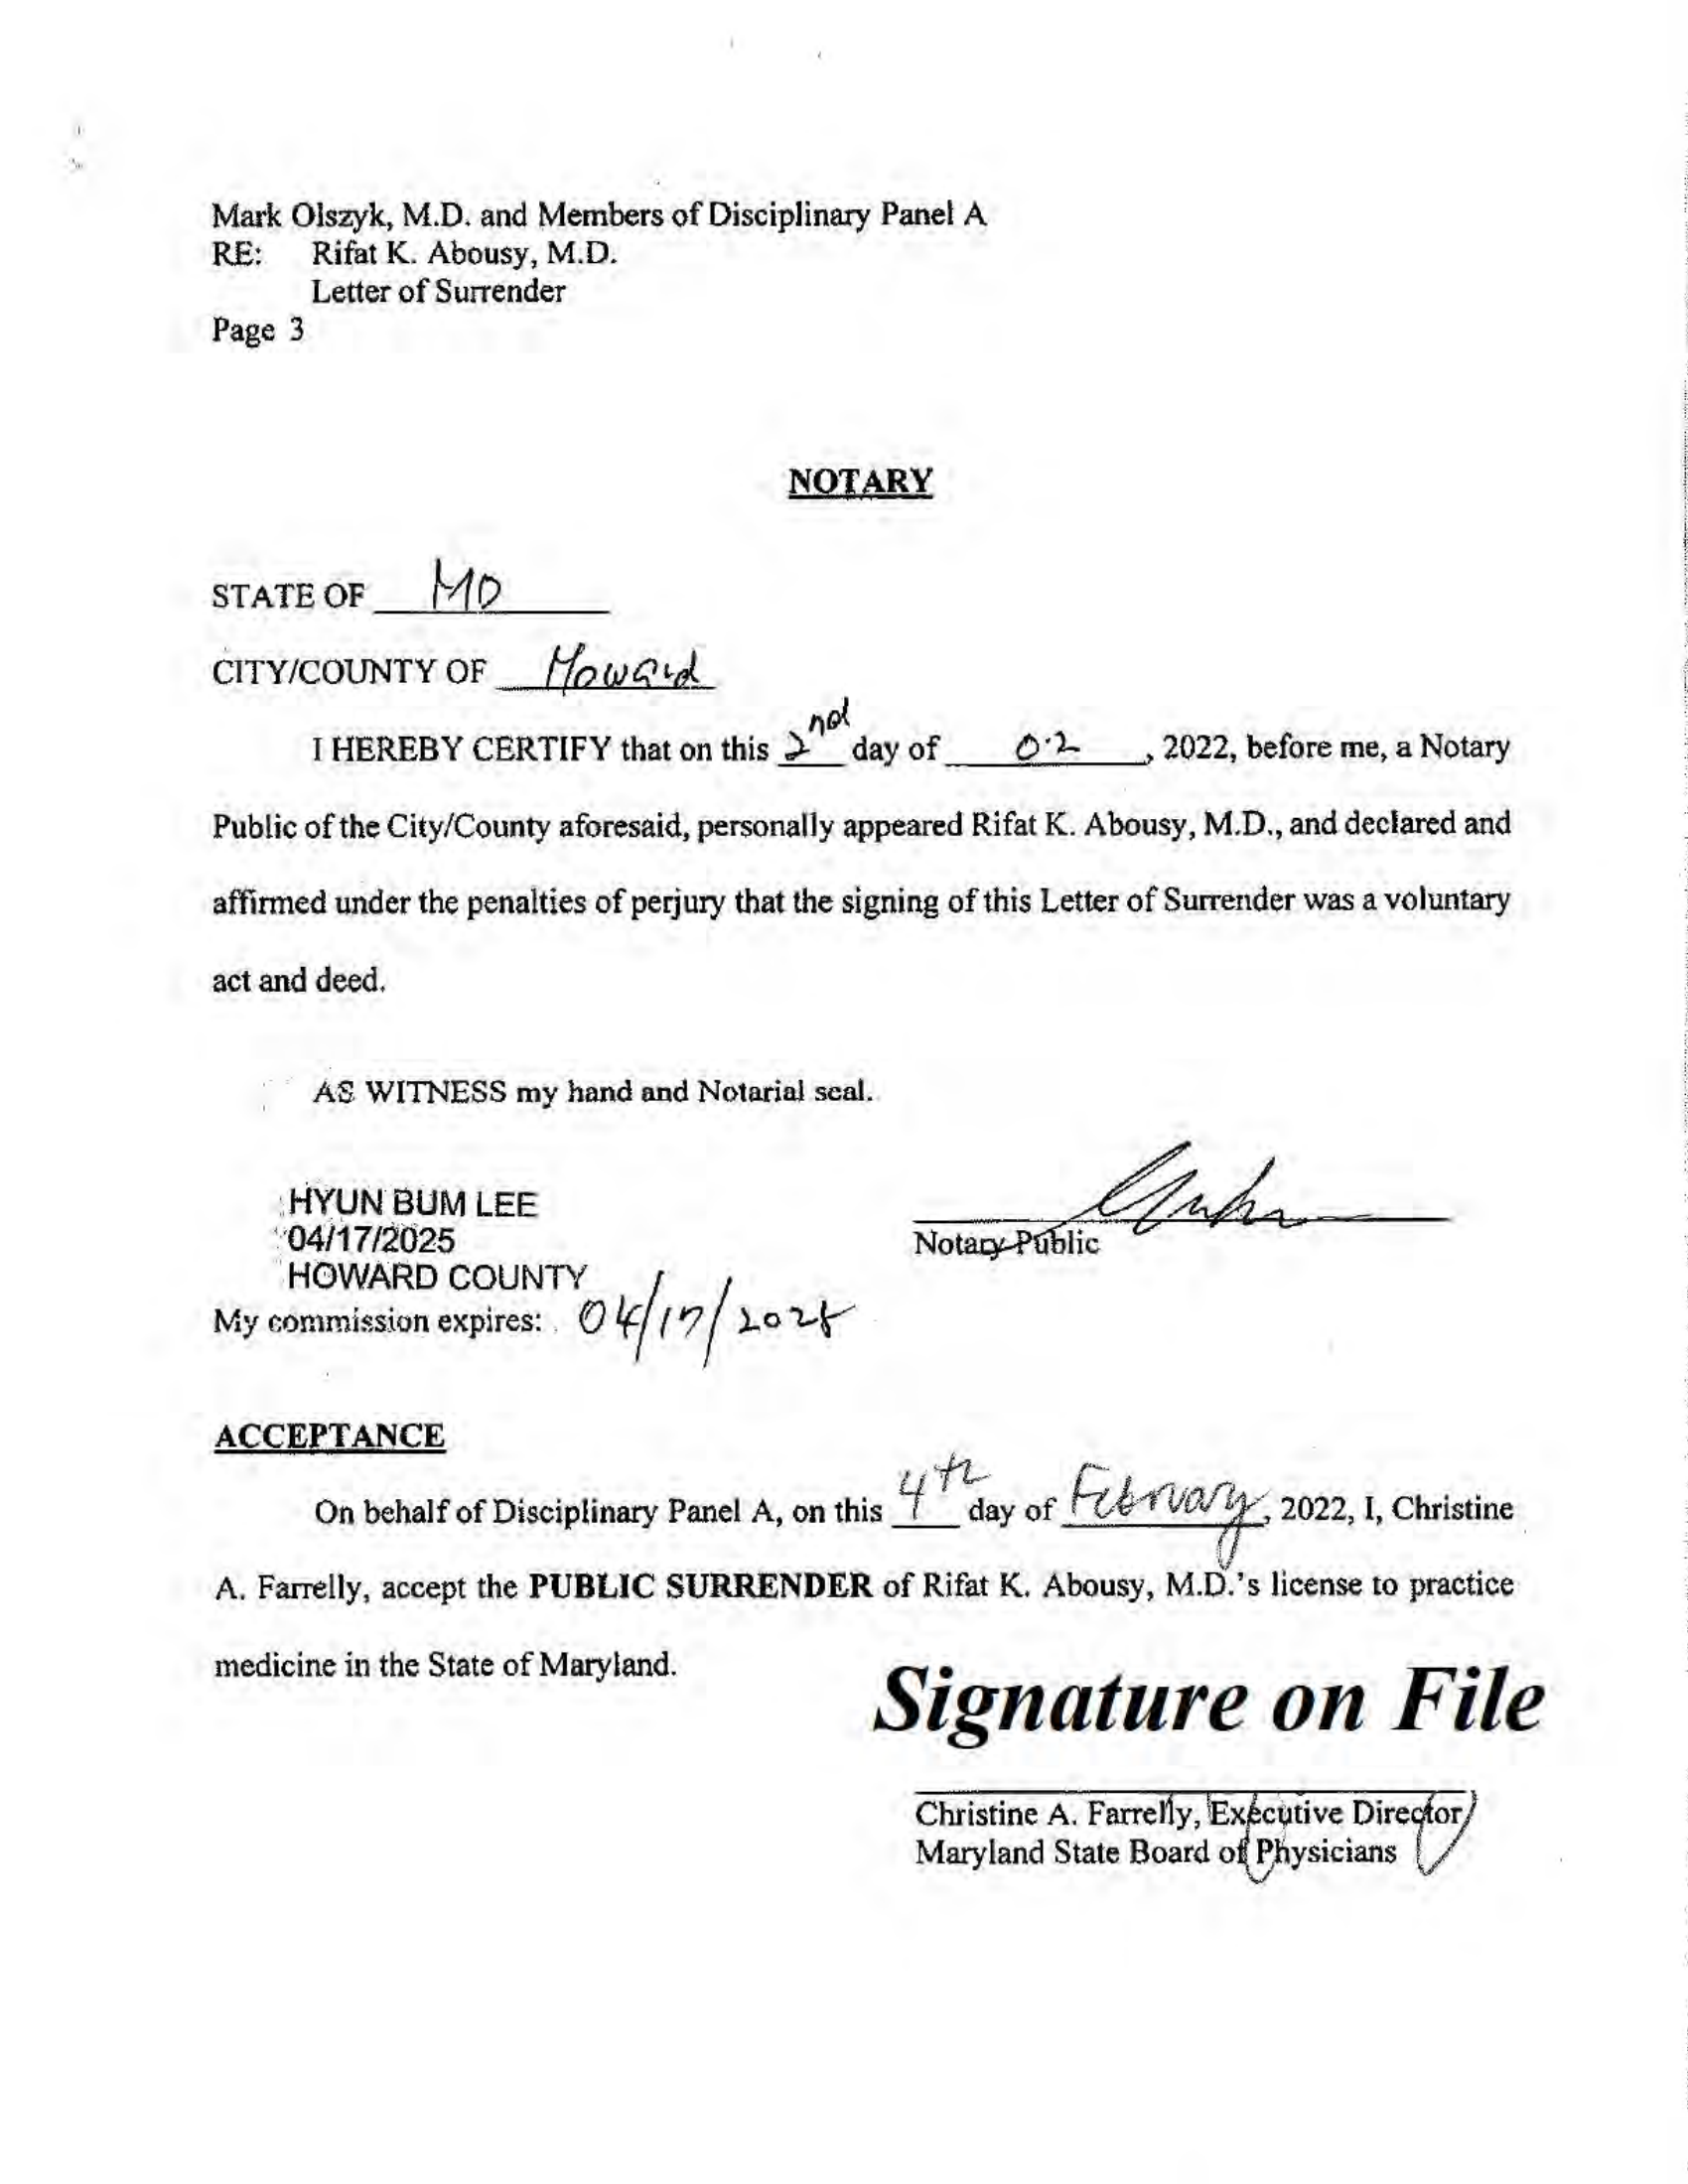 Mark Olszyk, M.D. and Members of Disciplinary Panel A
RE: Rifat K. Abousy, M.D.
Letter of Surrender
Page 3
NOTARY
STATE OF MD
CITY/COUNTY OF Howard
I HEREBY CERTIFY that on this 2nd day of 02, 2022, before me, a Notary
Public of the City/County aforesaid, personally appeared Rifat K. Abousy, M.D., and declared and
affirmed under the penalties of perjury that the signing of this Letter of Surrender was a voluntary
act and deed.
AS WITNESS my hand and Notarial seal.
HYUN BUM LEE
04/17/2025
HOWARD COUNTY
Notary Public
My commission expires: 04/17/2025
ACCEPTANCE
On behalf of Disciplinary Panel A, on this 4th day of February, 2022, I, Christine
A. Farrelly, accept the PUBLIC SURRENDER of Rifat K. Abousy, M.D.'s license to practice
medicine in the State of Maryland.
Signature on File
Christine A. Farrelly, Executive Director
Maryland State Board of Physicians